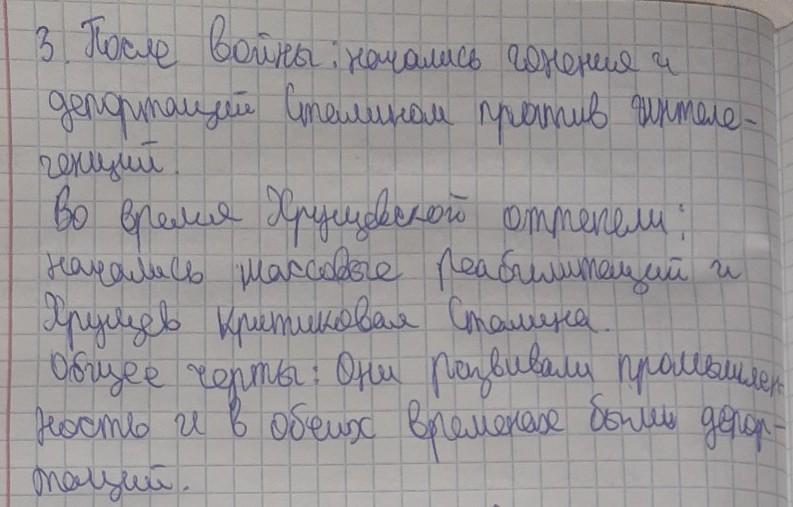 3. После войны: начались гонения и
депортаций Сталином против интеле-
генций.
Во время Хрущевской оттепели:
начались массовые реабилитаций и
Хрущев критиковал Сталина.
Общее черты: Они развивали промышлен-
ность и в обеих временах были депор-
таций.